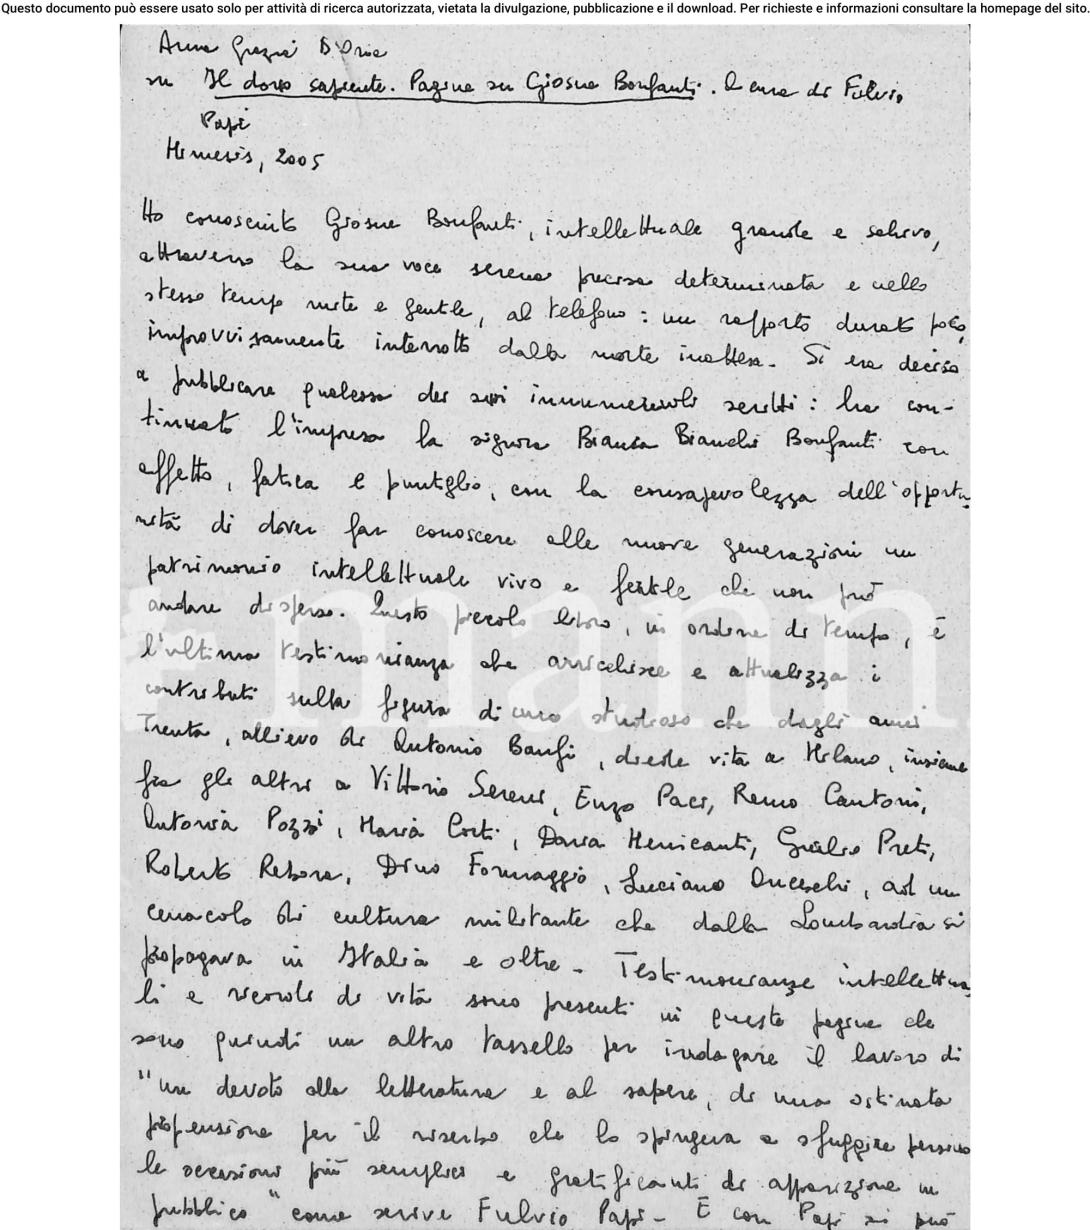 Questo documento può essere usato solo per attività di ricerca autorizzata, vietata la divulgazione, pubblicazione e il download. Per richieste e informazioni consultare la homepage del sito.
Anna Grazia D'Oria
su Il dono sapiente. Pagine su Giosue Bonfanti. A cura di Fulvio
Papi
Mimesis, 2005
Ho conosciuto Giosue Bonfanti, intellettuale grande e schivo,
attraverso la sua voce serena precisa determinata e nello
stesso tempo mite e gentile, al telefono: un rapporto durato poco,
improvvisamente interrotto dalla morte inattesa. Si era deciso
a pubblicare qualcosa dei suoi innumerevoli scritti: ha con-
tinuato l'impresa la signora Bianca Bianchi Bonfanti con
affetto, fatica e puntiglio, con la consapevolezza dell'opportu
nità di dover far conoscere alle nuove generazioni un
patrimonio intellettuale vivo e fertile che non può
andare disperso. Questo piccolo libro, in ordine di tempo, è
l'ultima testimonianza che arricchisce e attualizza i
contributi sulla figura di uno studioso che dagli anni
Trenta, allievo di Antonio Banfi, diede vita a Milano, insieme
fra gli altri a Vittorio Sereni, Enzo Paci, Remo Cantoni,
Antonia Pozzi, Maria Corti, Daria Menicanti, Giulio Preti,
Roberto Rebora, Dino Formaggio, Luciano Anceschi, ad un
cenacolo di cultura militante che dalla Lombardia si
propagava in Italia e oltre. Testimonianze intellettua
li e ricordi di vita sono presenti in queste pagine che
sono quindi un altro tassello per indagare il lavoro di
"un devoto alla letteratura e al sapere, di una ostinata
propensione per il riserbo che lo spingeva a sfuggire persino
le occasioni più semplici e gratificanti di apparizione in
pubblico" come scrive Fulvio Papi. E con Papi si può
mann